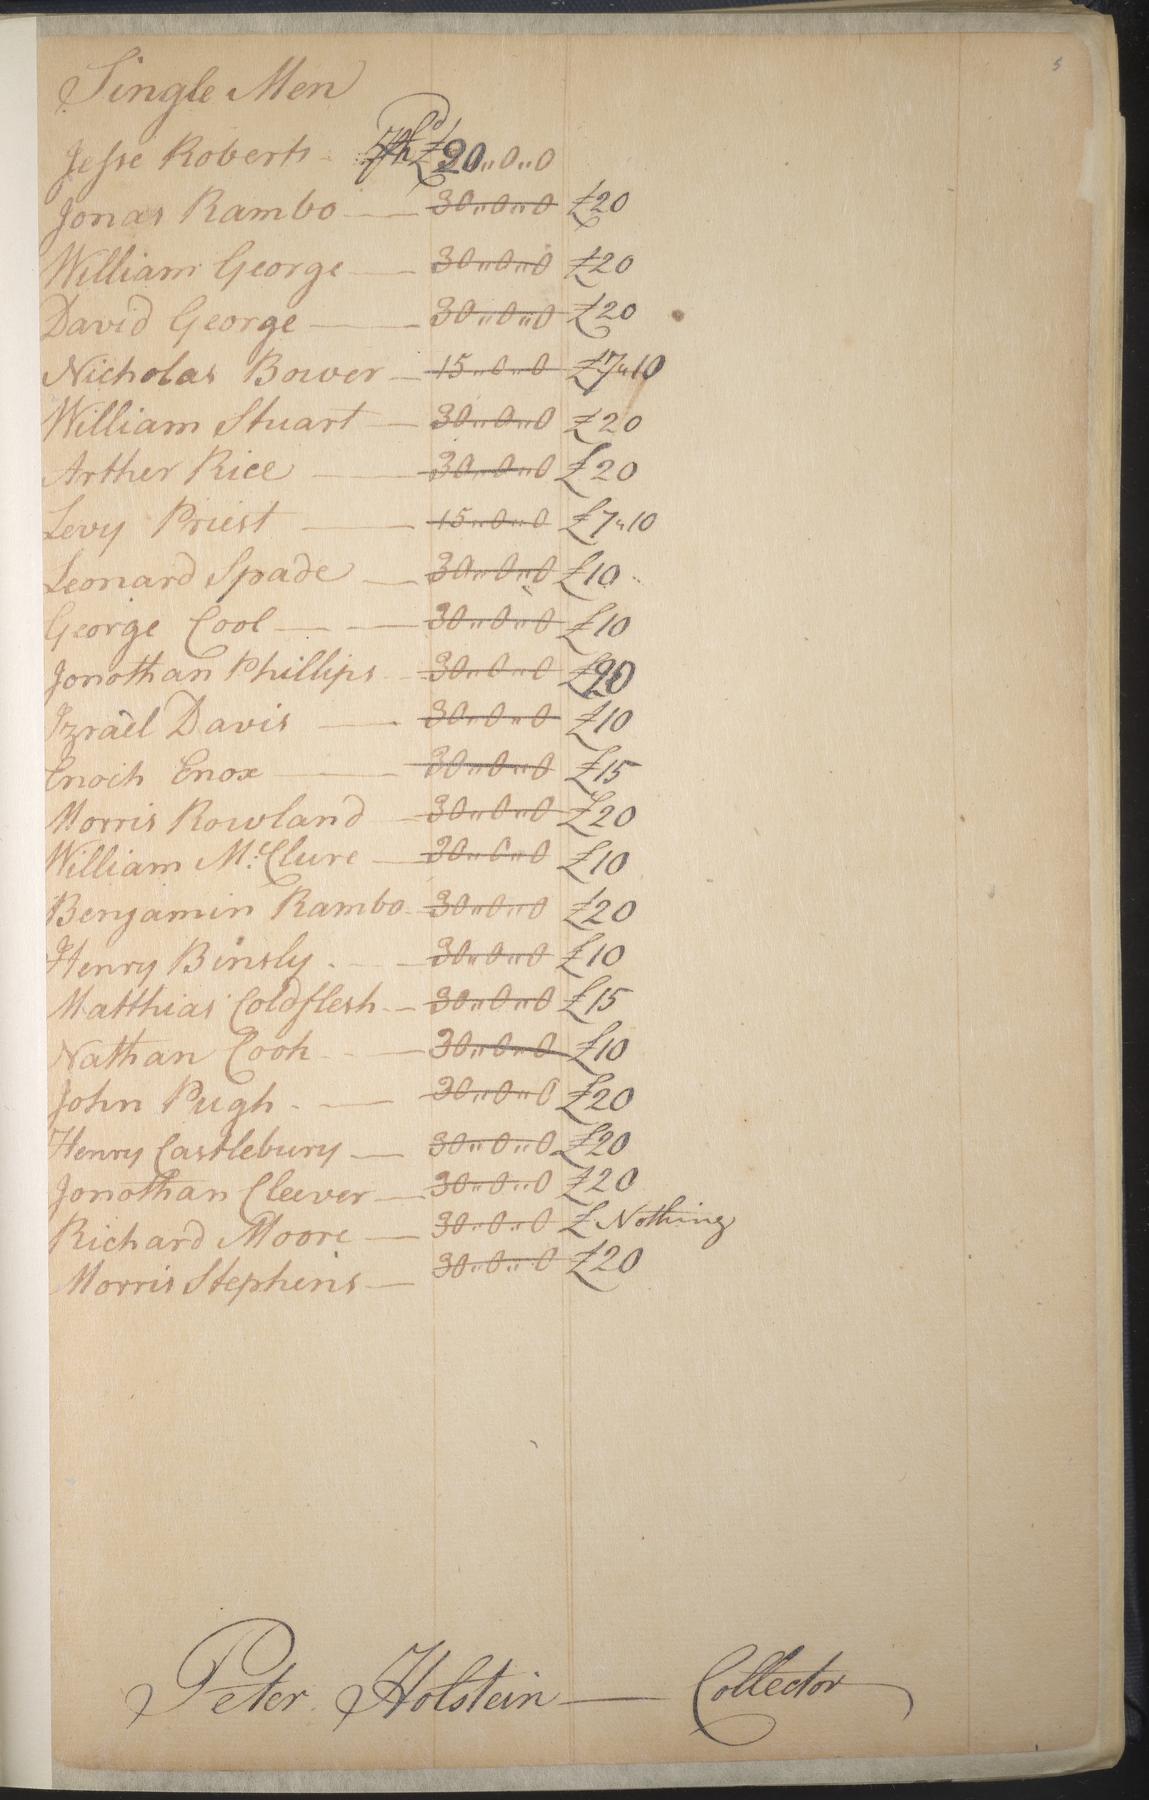 5
Single Men
Jesse Roberts £20,,0,,0
Jonas Rambo 30,,0,,0 £20
William George 30,,0,,0 £20
David George 30,,0,,0 £20
Nicholas Bower 15,,0,,0 £7,,10
William Stuart 30,,0,,0 £20
Arther Rice 30,,0,,0 £20
Levy Priest 15,,0,,0 £7,,10
Leonard Spade 30,,0,,0 £10
George Cool 30,,0,,0 £10
Jonothan Phillips 30,,0,,0 £20
Izrael Davis 30,,0,,0 £10
Enoch Enox 30,,0,,0 £15
Morris Rowland 30,,0,,0 £20
William McClure 30,,0,,0 £10
Benjamin Rambo 30,,0,,0 £20
Henry Binsly 30,,0,,0 £10
Matthias Coldflesh 30,,0,,0 £15
Nathan Cook 30,,0,,0 £10
John Pugh 30,,0,,0 £20
Henry Castlebury 30,,0,,0 £20
Jonothan Cleever 30,,0,,0 £20
Richard Moore 30,,0,,0 £ Nothing
Morris Stephens 30,,0,,0 £20
Peter Holstein — Collector